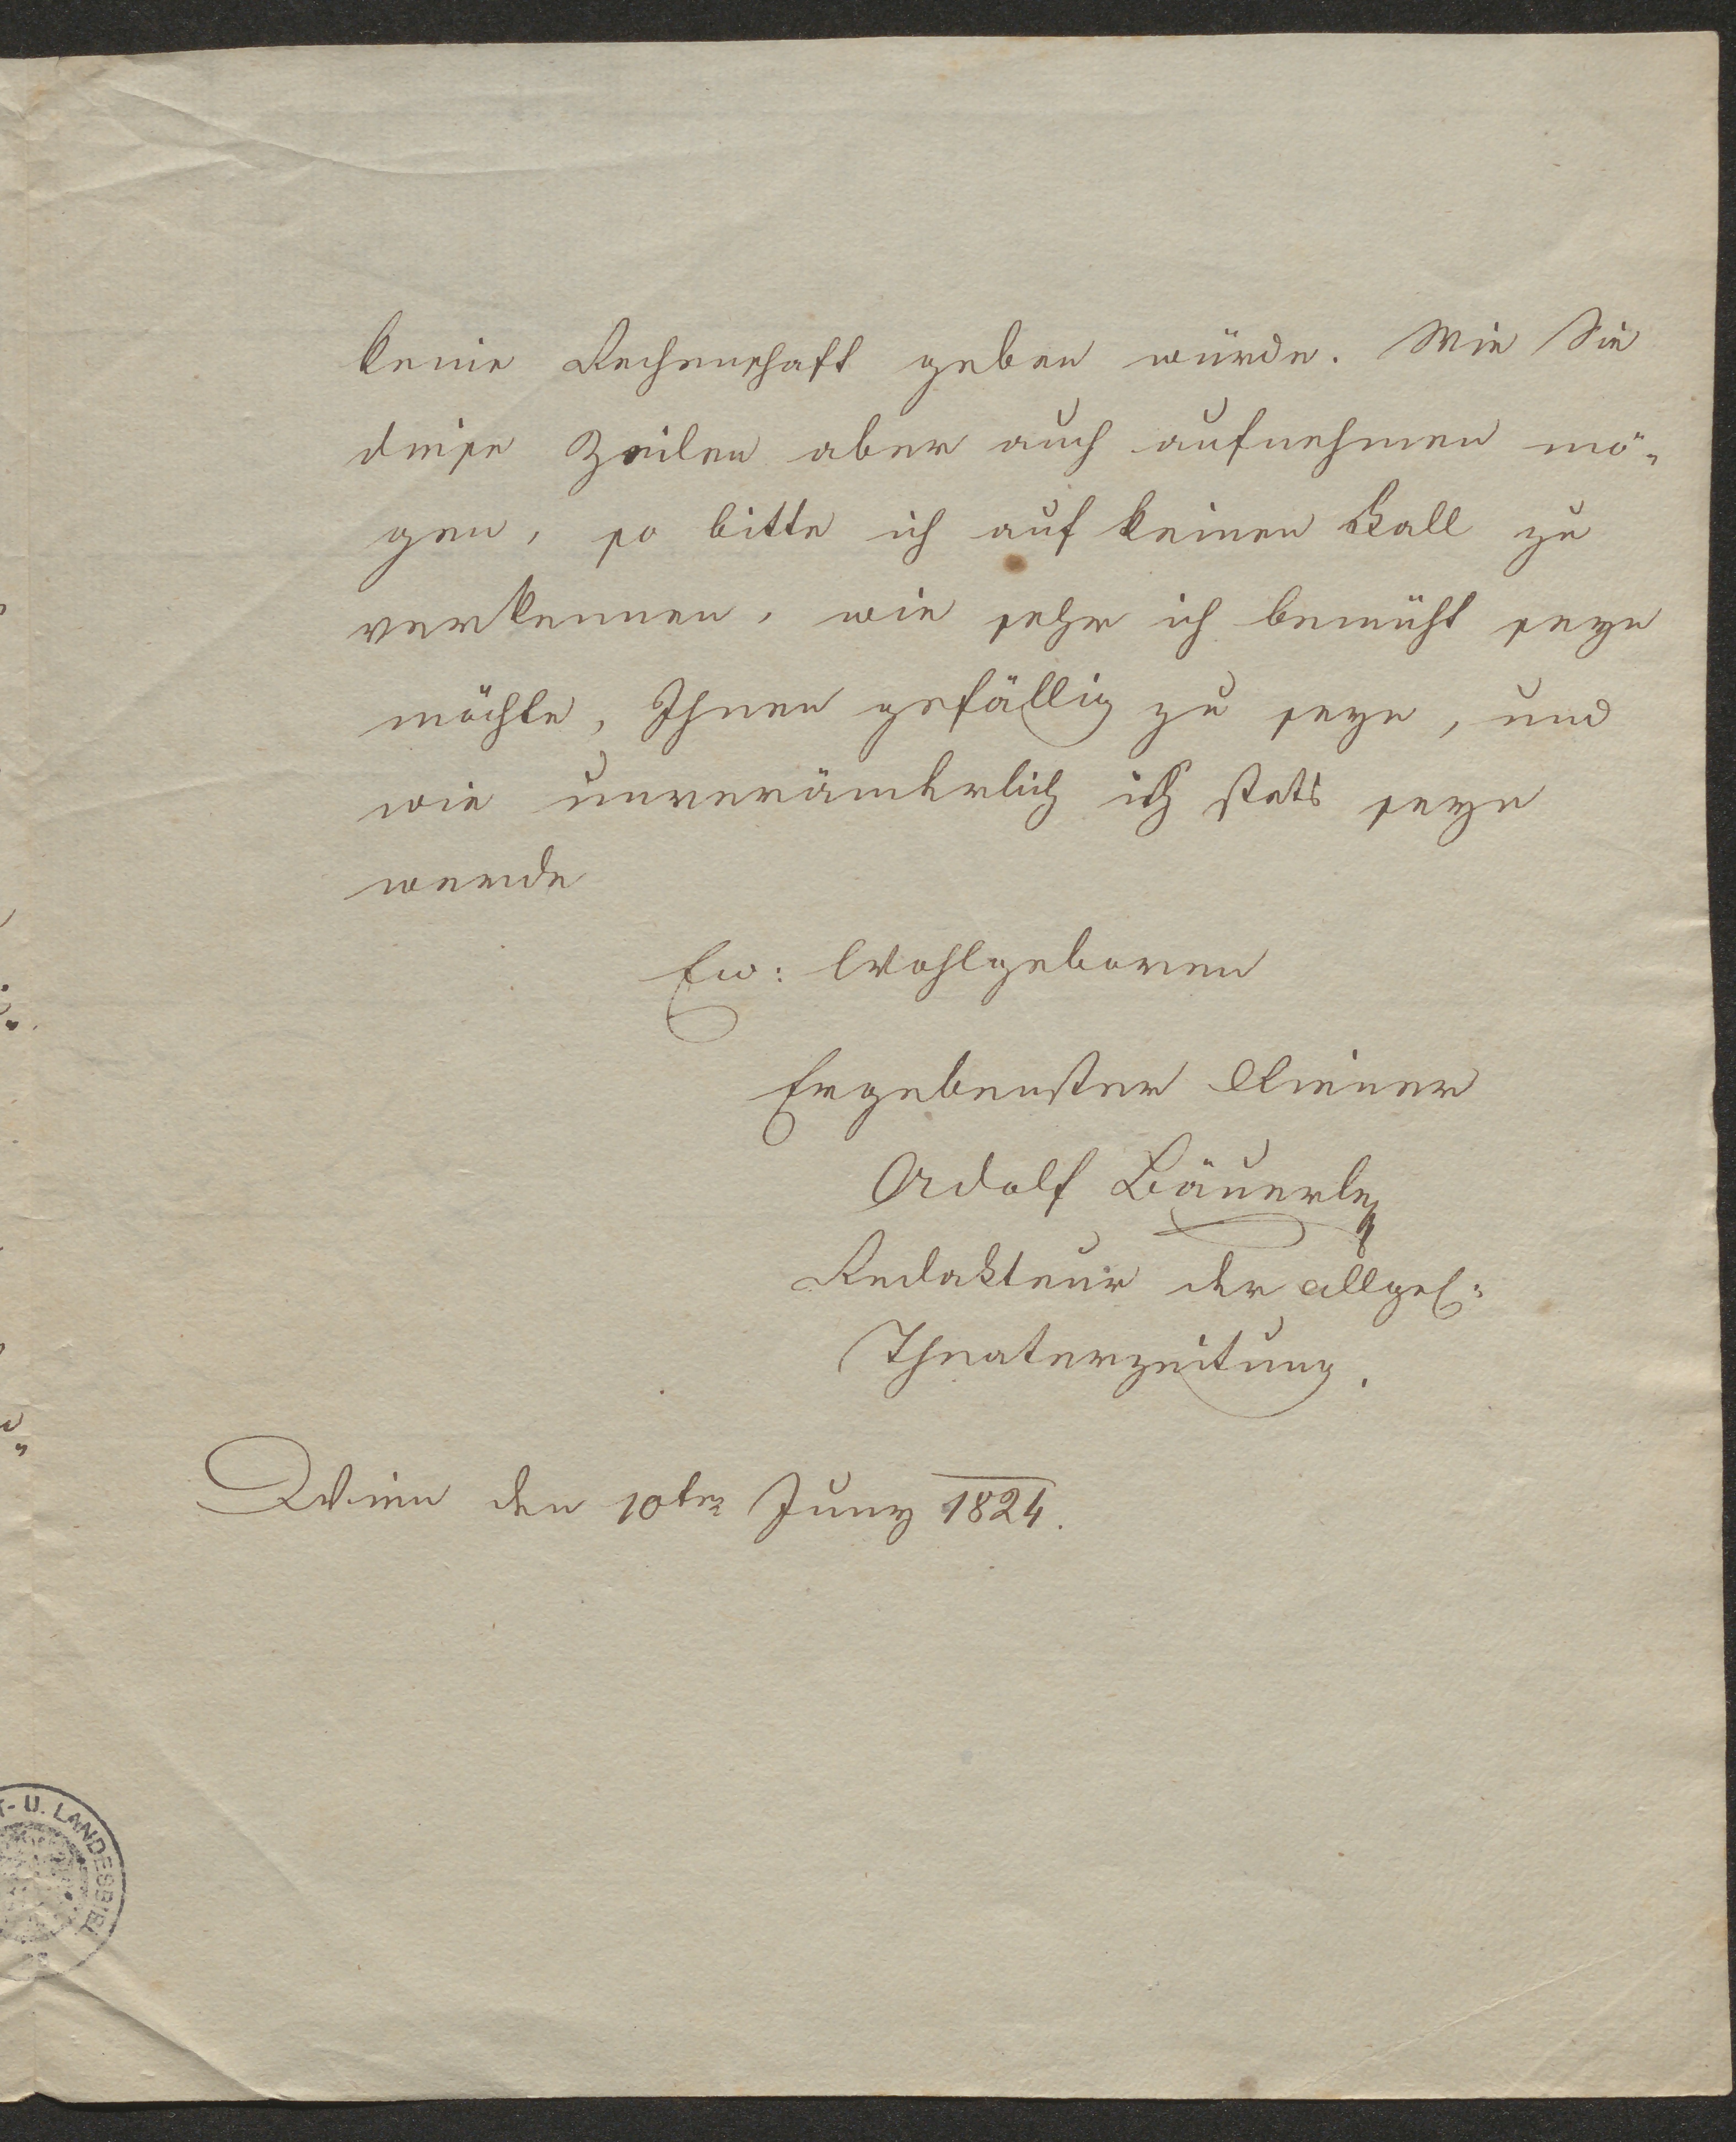 keine Rechenschaft geben würde. Wie Sie
diese Zeilen aber auch aufnehmen mö„
gen, so bitte ich auf keinen Fall zu
verkennen, wie sehr ich bemüht seyn
möchte, Ihnen gefällig zu seyn, und
wie unveränderlich ich stets seyn
werde
Ew: Wohlgeboren
Ergebenster Diener
Adolf Bäuerle
Redakteur der allgel:
Theaterzeitung.
Wien den 10ten Juny 1824.
T- U. LANDESBIBL